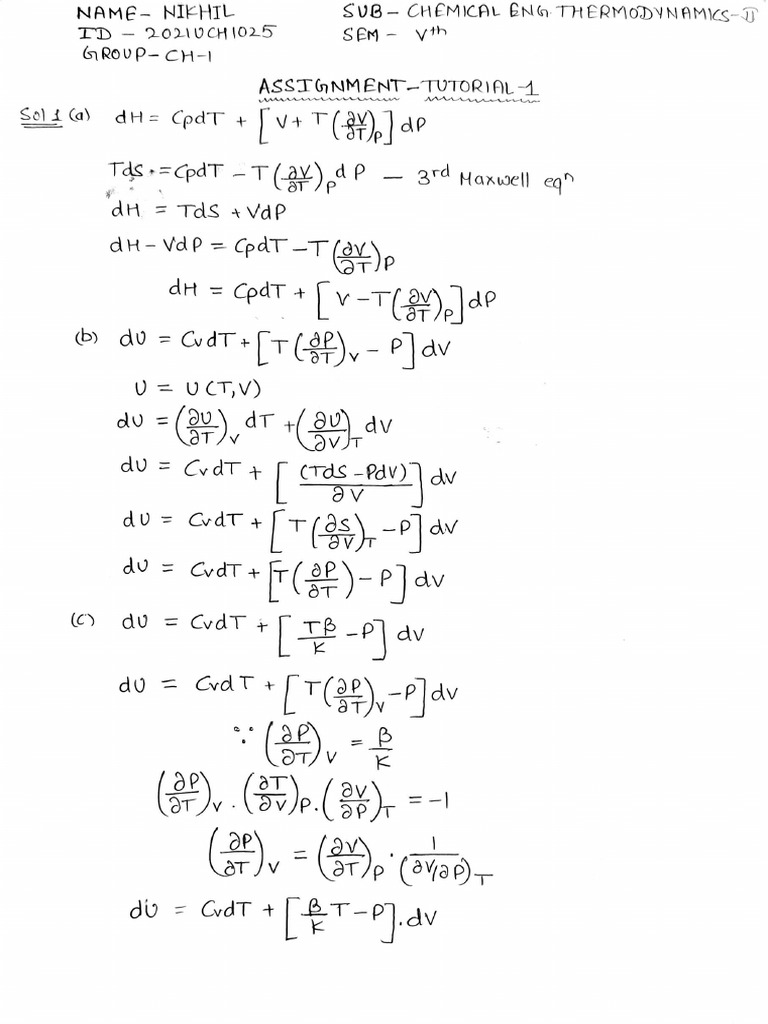 NAME- NIKHIL SUB- CHEMICAL ENG. THERMODYNAMICS-II
ID - 2021UCH1025 SEM - Vth
GROUP- CH-1
ASSIGNMENT-TUTORIAL-1
Sol 1 (a) dH = CpdT + [V + T(∂V/∂T)P] dP
Tds = CpdT - T(∂V/∂T)P dP — 3rd Maxwell eqn
dH = Tds + VdP
dH - VdP = CpdT - T(∂V/∂T)P
dH = CpdT + [V - T(∂V/∂T)P] dP
(b) dU = CvdT + [T(∂P/∂T)V - P] dV
U = U(T,V)
dU = (∂U/∂T)V dT + (∂U/∂V)T dV
dU = CvdT + [(Tds - PdV)/∂V] dV
dU = CvdT + [T(∂S/∂V)T - P] dV
dU = CvdT + [T(∂P/∂T) - P] dV
(c) dU = CvdT + [Tβ/K - P] dV
dU = CvdT + [T(∂P/∂T)V - P] dV
∵ (∂P/∂T)V = β/K
(∂P/∂T)V . (∂T/∂V)P . (∂V/∂P)T = -1
(∂P/∂T)V = (∂V/∂T)P . 1/(∂V/∂P)T
dU = CvdT + [β/K T - P] . dV